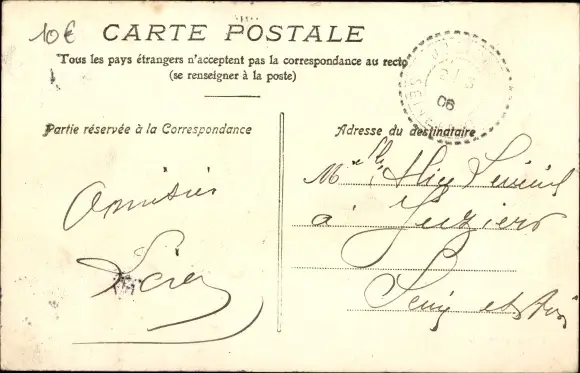 10€
CARTE POSTALE
Tous les pays étrangers n'acceptent pas la correspondance au recto
(se renseigner à la poste)
Partie réservée à la Correspondance
Adresse du destinataire
06
Amitiés
M
à Juziers
Seine et Oise